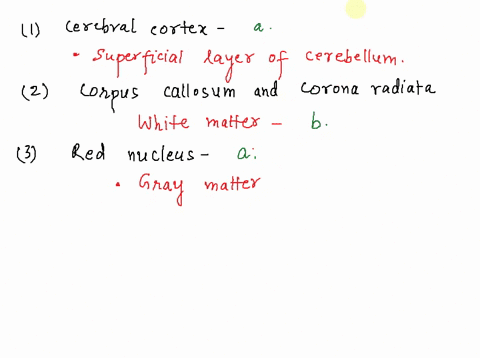 (1) Cerebral cortex - a.
• Superficial layer of cerebellum.
(2) Corpus callosum and corona radiata
White matter - b.
(3) Red nucleus - a.
• Gray matter